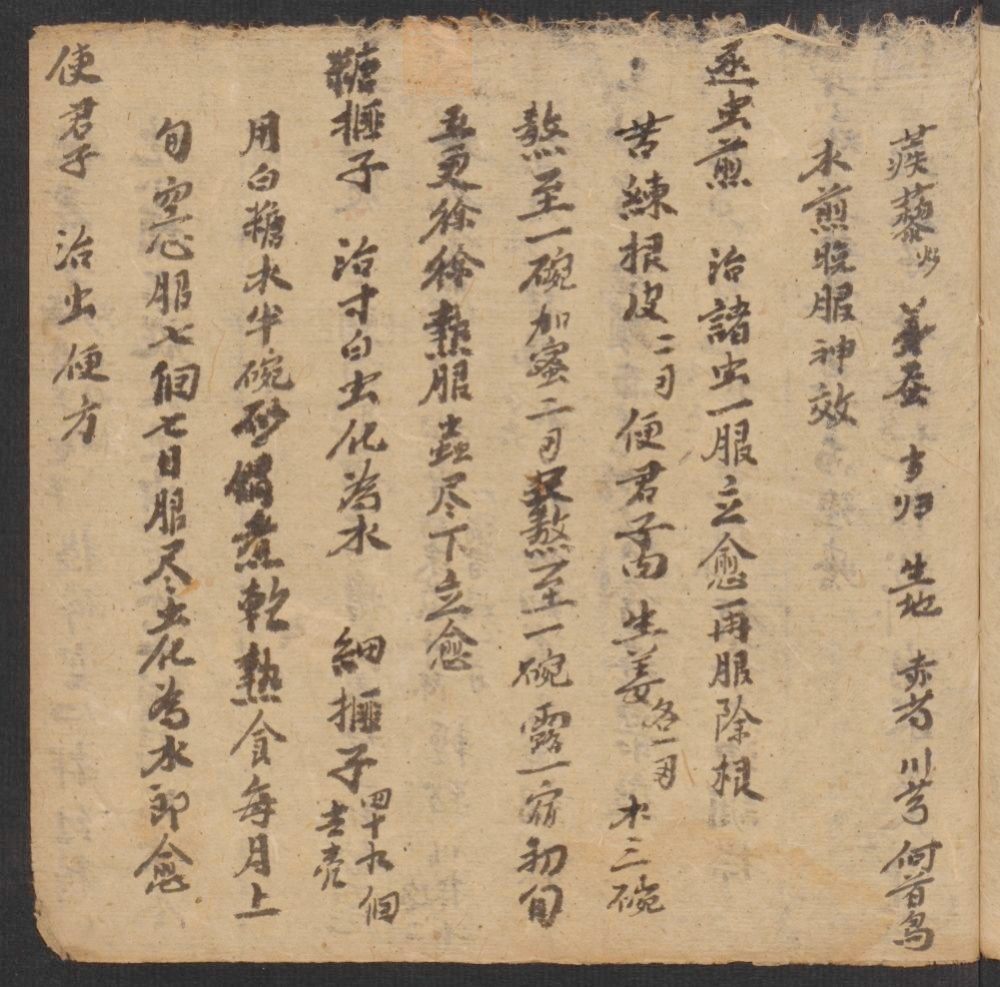 蒺藜炒 姜蚕 当归 生地 赤芍 川芎 何首烏
水煎晚服神效
逐虫煎 治諸虫一服立愈再服除根
苦練根皮二刄 使君子肉 生姜各一刄 水三碗
熬至一碗加蜜二刄又熬至一碗露一宿初旬
五更徐徐熱服蟲尽下立愈
糖榧子 治寸白虫化為水 細榧子四十九個去壳
用白糖水半碗砂鍋煮乾熟食每月上
旬空心服七個七日服尽虫化為水即愈
使君子 治虫便方